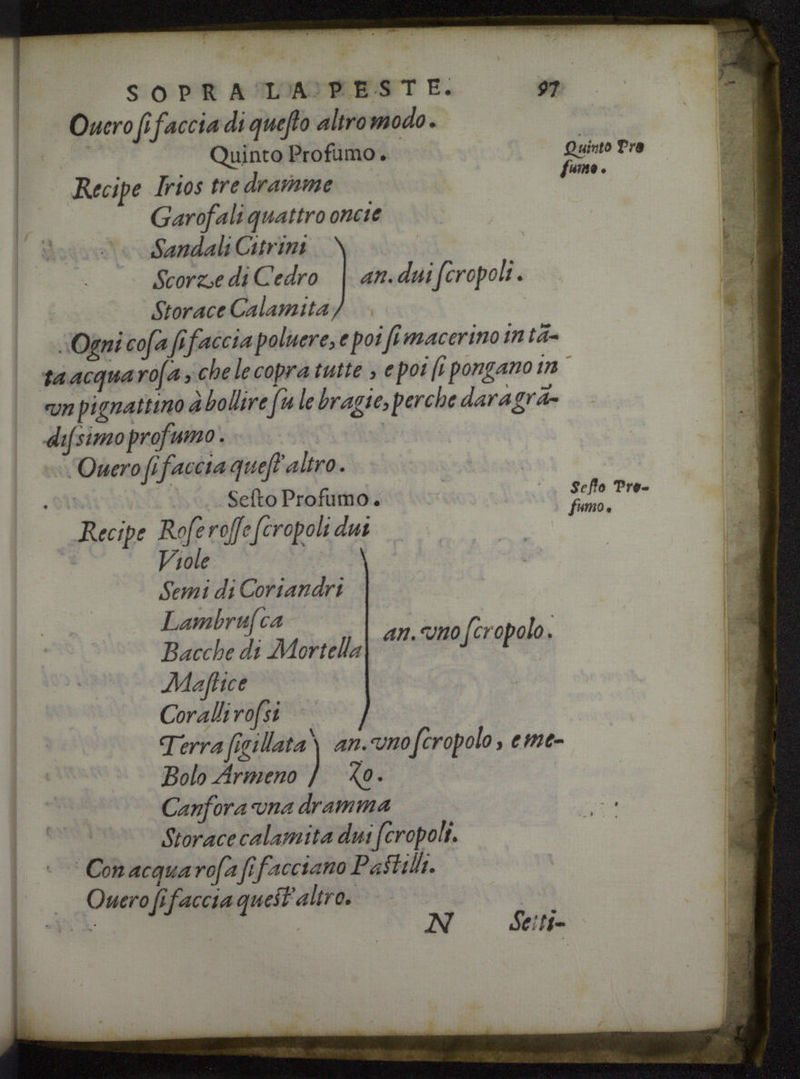 SOPRA LA PESTE. 97
Ouero ſi faccia di queſto altro modo.
Quinto Profumo.
Quinto Pro
fumo.
Recipe Irios tre dramme
Garofali quattro oncie
Sandali Citrini
Scorze di Cedro an. dui ſcropoli.
Storace Calamita
Ogni coſa ſi faccia poluere, e poi ſi macerino in tã-
ta acqua roſa, che le copra tutte, e poi ſi pongano in
vn pignattino à bollire ſu le bragie, perche darà grã-
diſsimo profumo.
Ouero ſi faccia queſt'altro.
Seſto Profumo.
Seſto Pro-
fumo.
Recipe Roſe roſſe ſcropoli dui
Viole
Semi di Coriandri
Lambruſca
an. vno ſcropolo.
Bacche di Mortella
Maſtice
Coralli roſsi
Terra ſigillata an. vno ſcropolo, e me-
Bolo Armeno zo.
Canfora vna dramma
Storace calamita dui ſcropoli.
Con acqua roſa ſi facciano Paſtilli.
Ouero ſi faccia queſt'altro.
N Setti-